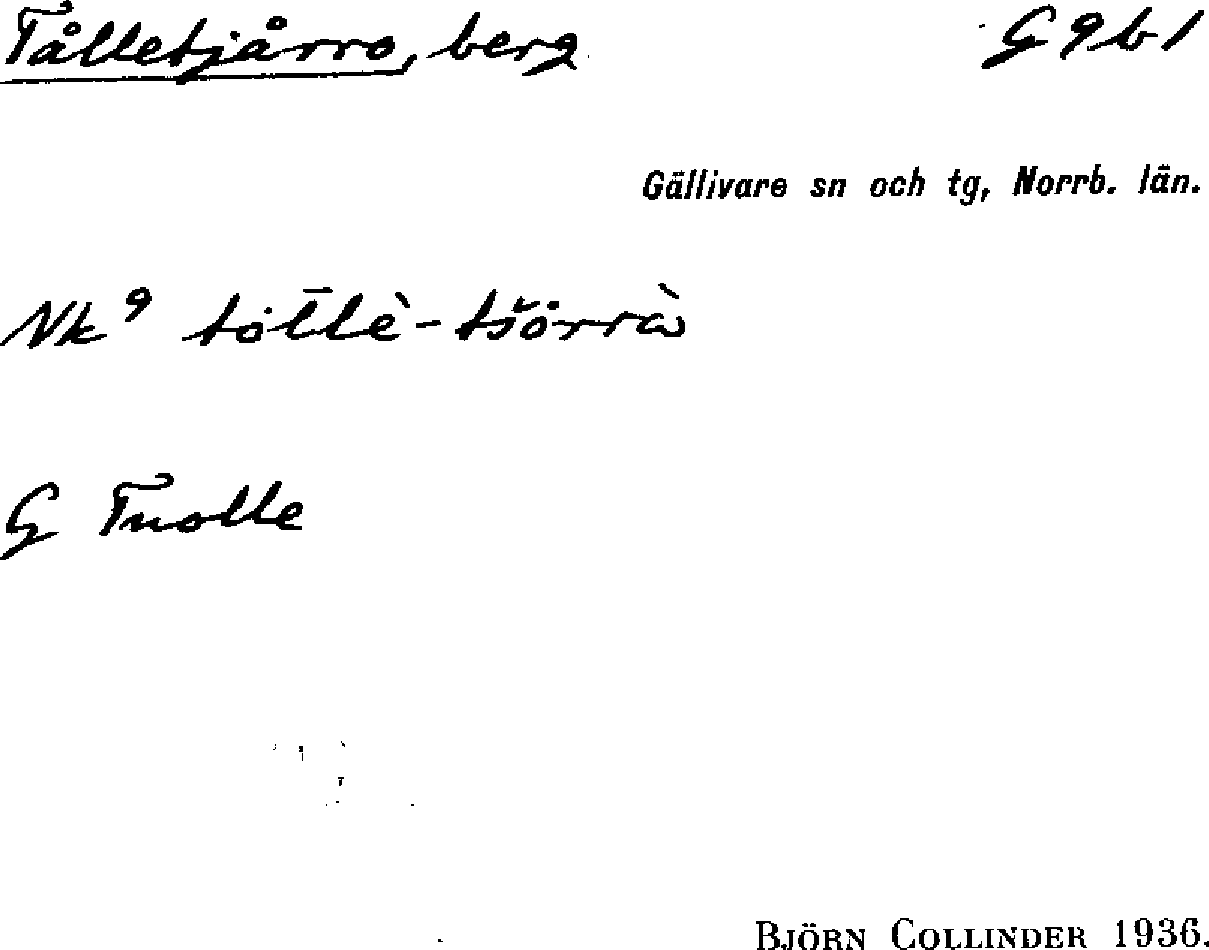 Tålletjårro, berg G9b1
Gällivare sn och tg, Norrb. län.
Nk⁹ tȯl̄lè-tšȯrrὼ
G Tuolle
BJÖRN COLLINDER 1936.